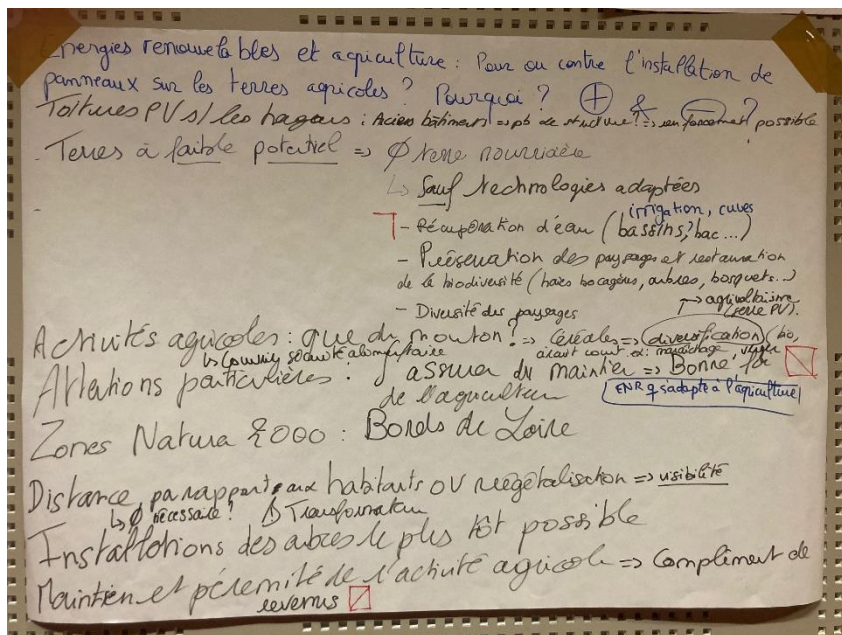 Energies renouvelables et agriculture : Pour ou contre l'installation de
panneaux sur les terres agricoles ? Pourquoi ? + &
Toitures PV s/ les hagars : Aciens bâtiments => pb de structure? => renforcement possible ?
- Terres à faible potentiel => Ø terre nourricière
↳ Sauf technologies adaptées
irrigation, cuves
- Récupération d'eau (bassins, bac...)
- Préservation des paysages et restauration
de la biodiversité (haies bocagères, arbres, bosquets...)
- Diversité des paysages
→ agrivoltaïsme
(serre PV).
Activités agricoles : que du mouton ? => Céréales => diversification (bio,
circuit court maraîchage, verger
↳ sécurité alimentaire
Attentions particulières : assurer du maintien => Bonne foi
de l'agriculteur
ENR q s'adapte à l'agriculture
Zones Natura 2000 : Bords de Loire
Distance par rapport aux habitants OU végétalisation => visibilité
↳ Ø nécessaire ? Transformateur
Installations des arbres le plus tôt possible
Maintien et pérennité de l'activité agricole => Complément de
revenus